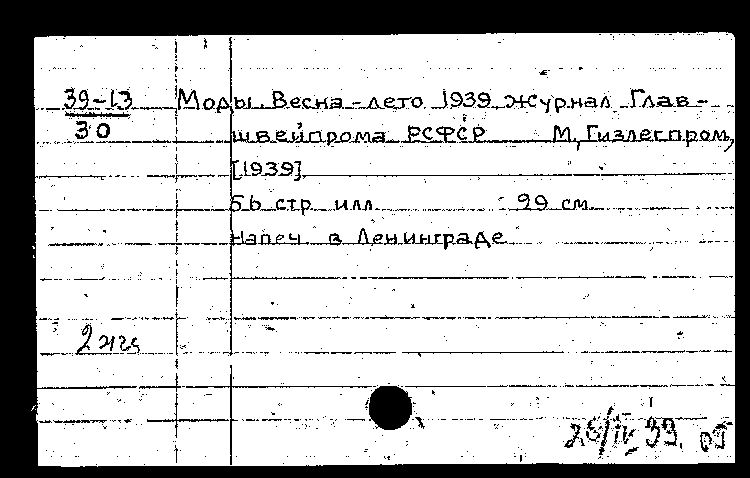 39-13 Моды. Весна-лето 1939 журнал Глав-
30 швейпрома РСФСР М, Гизлегпром,
[1939]
56 стр илл 29 см
Напеч в Ленинграде
2 экз
26/IV 39.